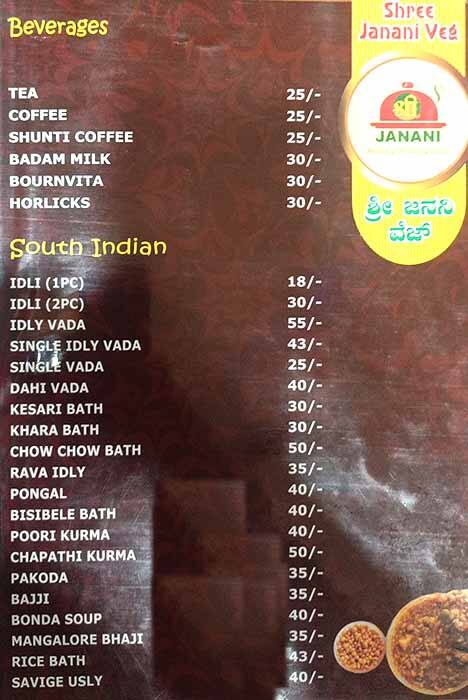 Beverages
Shree
Janani Veg
TEA 25/-
COFFEE 25/-
SHUNTI COFFEE 25/-
BADAM MILK 30/-
BOURNVITA 30/-
HORLICKS 30/-
श्री
JANANI
ಶ್ರೀ ಜನನಿ
ವೆಜ್
South Indian
IDLI (1PC) 18/-
IDLI (2PC) 30/-
IDLY VADA 55/-
SINGLE IDLY VADA 43/-
SINGLE VADA 25/-
DAHI VADA 40/-
KESARI BATH 30/-
KHARA BATH 30/-
CHOW CHOW BATH 50/-
RAVA IDLY 35/-
PONGAL 40/-
BISIBELE BATH 40/-
POORI KURMA 40/-
CHAPATHI KURMA 50/-
PAKODA 35/-
BAJJI 35/-
BONDA SOUP 40/-
MANGALORE BHAJI 35/-
RICE BATH 43/-
SAVIGE USLY 40/-